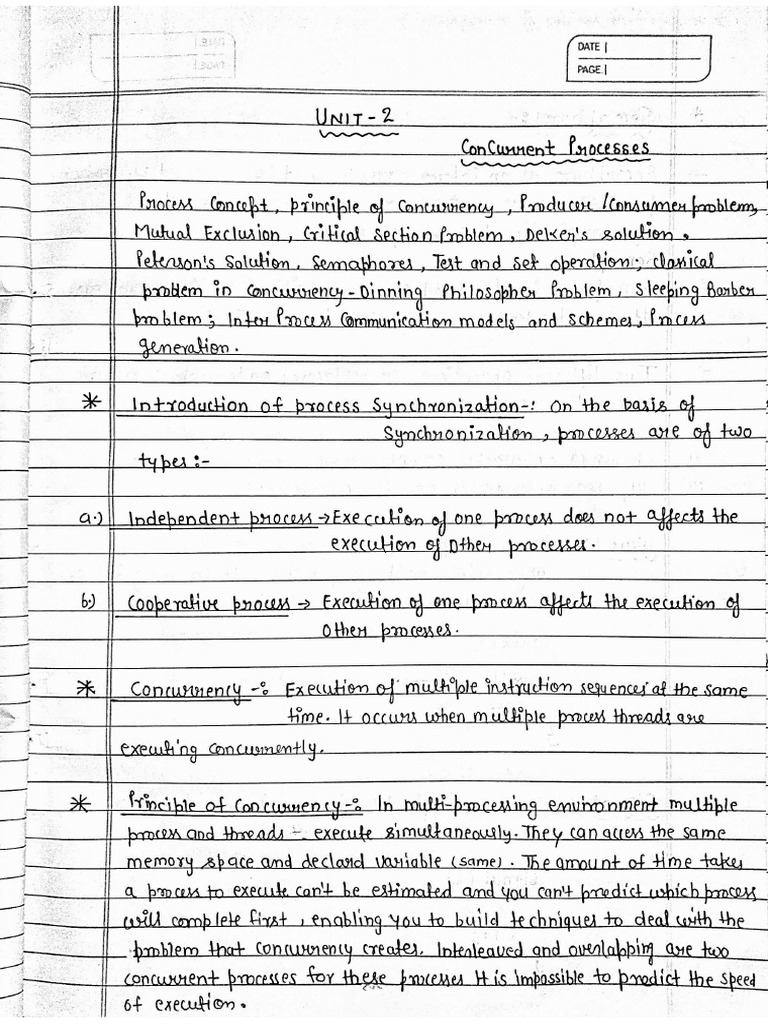 DATE
PAGE
UNIT-2
Concurrent Processes
Process Concept, principle of Concurrency, Producer /Consumer problem,
Mutual Exclusion, Critical Section Problem, Dekker's solution.
Peterson's Solution, Semaphores, Test and set operation; clasical
problem in Concurrency-Dinning Philosopher Problem, Sleeping Barber
problem; Inter Process Communication models and Schemes, Process
generation.
* Introduction of process Synchronization-: On the basis of
Synchronization, processes are of two
types:-
a.) Independent process → Execution of one process does not affects the
execution of Other processes.
b.) Cooperative process → Execution of one process affects the execution of
Other processes.
* Concurrency -: Execution of multiple instruction sequences at the same
time. It occurs when multiple process threads are
executing concurrently.
* Principle of Concurrency-: In multi-processing environment multiple
process and threads - execute simultaneously. They can access the same
memory space and declard variable (same). The amount of time takes
a process to execute can't be estimated and you can't predict which process
will complete first, enabling you to build techniques to deal with the
problem that concurrency creates. Interleaved and overlapping are two
concurrent processes for these processes It is impossible to predict the speed
of execution.